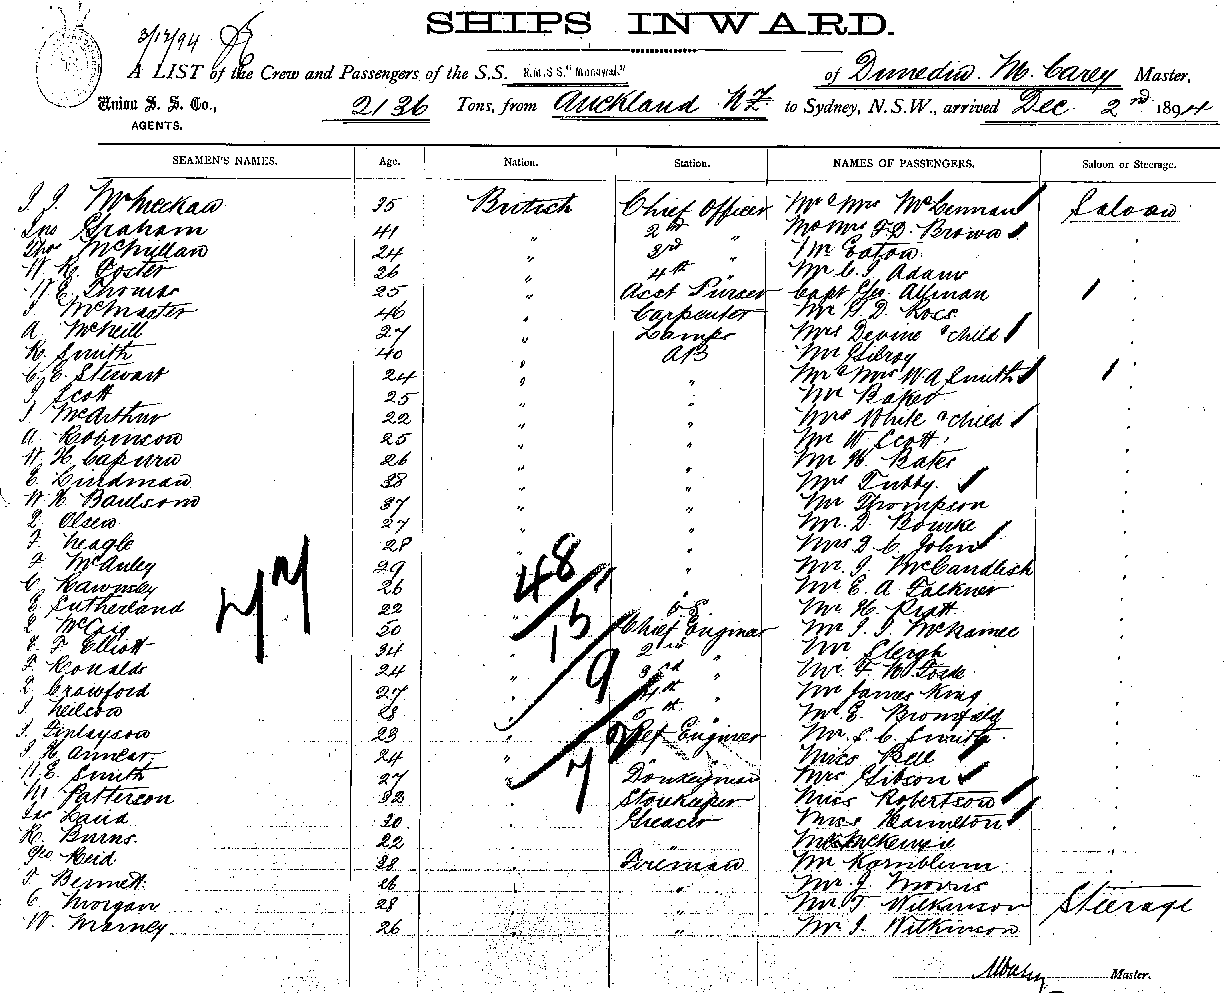 SHIPS INWARD.
3/12/94
A LIST of the Crew and Passengers of the S.S. R.M.S.S. "Monowai" of Dunedin M. Carey Master,
Union S. S. Co., AGENTS. 2136 Tons, from Auckland NZ to Sydney, N.S.W., arrived Dec 2nd 1894
SEAMEN'S NAMES. Age. Nation. Station. NAMES OF PASSENGERS. Saloon or Steerage.
35 British Chief Officer Mr & Mrs McLennan Saloon
Jno Graham 41 " 2nd " Mr & Mrs F.D. Brown
Thos McMillan 24 " 3rd " Mr Eaton
W. K. Foster 26 " 4th " Mr C. J. Adams
W. E. Thomas 25 " Asst Purser Capt Geo. Allman
J McMaster 46 " Carpenter Mr D. Ross
A McNeill 27 " Lamps Mrs Devine & child
K. Smith 40 " AB Mr Gilroy
C. E. Stewart 24 " " Mr & Mrs W A Smith
J Scott 25 " " Mr Baker
J McArthur 22 " " Mrs White & child
A Robinson 25 " " Mr W. Scott
W H Capurn 26 " " Mr H. Bates
E. Lindman 38 " " Mrs Tubby
W. H. 37 " " Mr Thompson
Olsen 27 " " Mr D. Bourke
F. Neagle 28 " " Mrs D. C. John
F. McAuley 29 " " Mr J. McCandlish
C. Rawnsley 26 " " Mr E. A. Falkner
E. Sutherland 22 " O.S. Mr H. Pratt
McCaig 50 " Chief Engineer Mr J. J.
E. F. Elliott 34 " 2nd " Mr Sleigh
F. Ronalds 24 " 3rd " Mr F W Ford
Crawford 27 " 4th " Mr James King
J Neilson 28 " 5th " Mr E. Bromfield
J. Finlayson 23 " Ref Engineer Mr S. C. Smith
J. H. 24 " Miss Bell
W. E. Smith 27 " Donkeyman Mrs Gibson
M Patterson 32 " Storekeeper Miss Robertson
Laird 30 " Greaser Miss Hamilton
H. Burns 22 " Mr McKenzie
Geo Reid 38 " Fireman Mr Kornblum
F. Bennett 26 " " Mr J. Morris
C Morgan 28 " " Mr T. Wilkinson Steerage
W. Marney 26 " " Mr J. Wilkinson
48
15
9
72
Master.